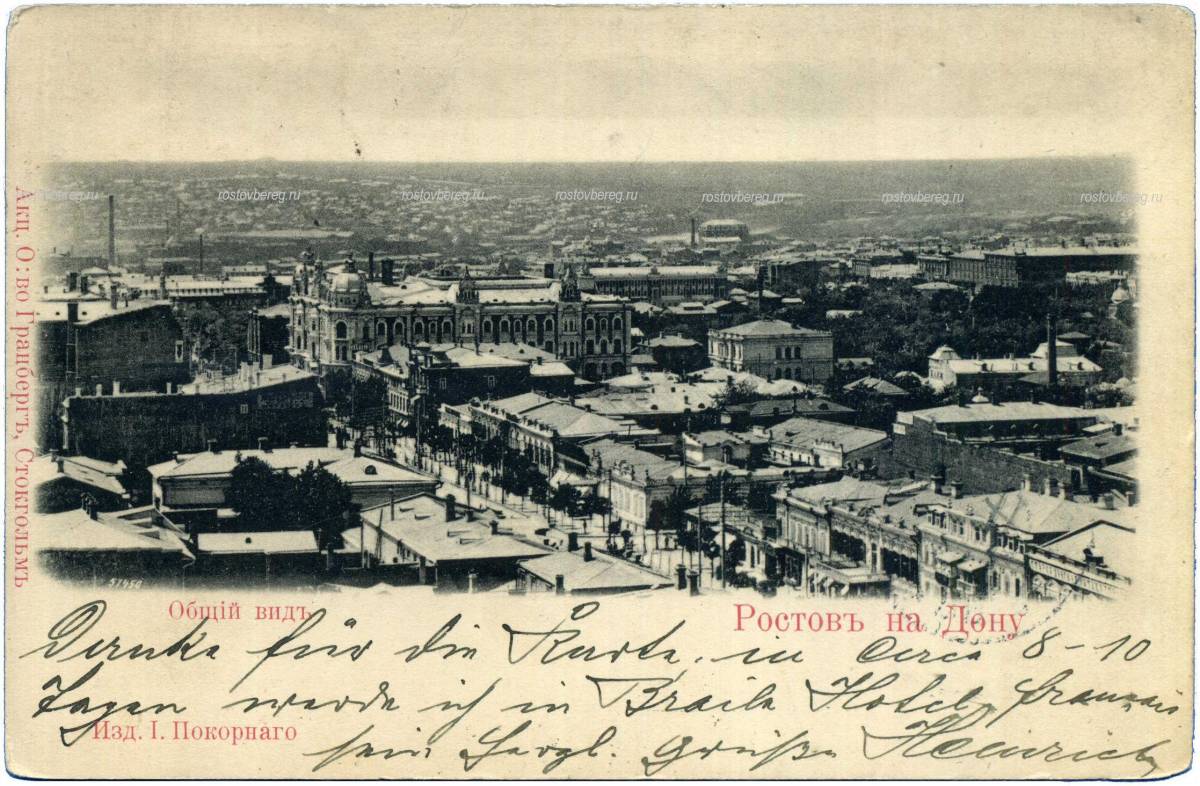 rostovbereg.ru rostovbereg.ru rostovbereg.ru rostovbereg.ru rostovbereg.ru rostovbereg.ru rostovbereg.ru
Акц. О:во Гранбергъ, Стокгольмъ
51456
Общій видъ
Ростовъ на Дону
Danke für die Karte. in circa 8-10
Tagen werde ich in Braila Hotel français
Изд. І. Покорнаго
sein Herzl. Grüße Heinrich